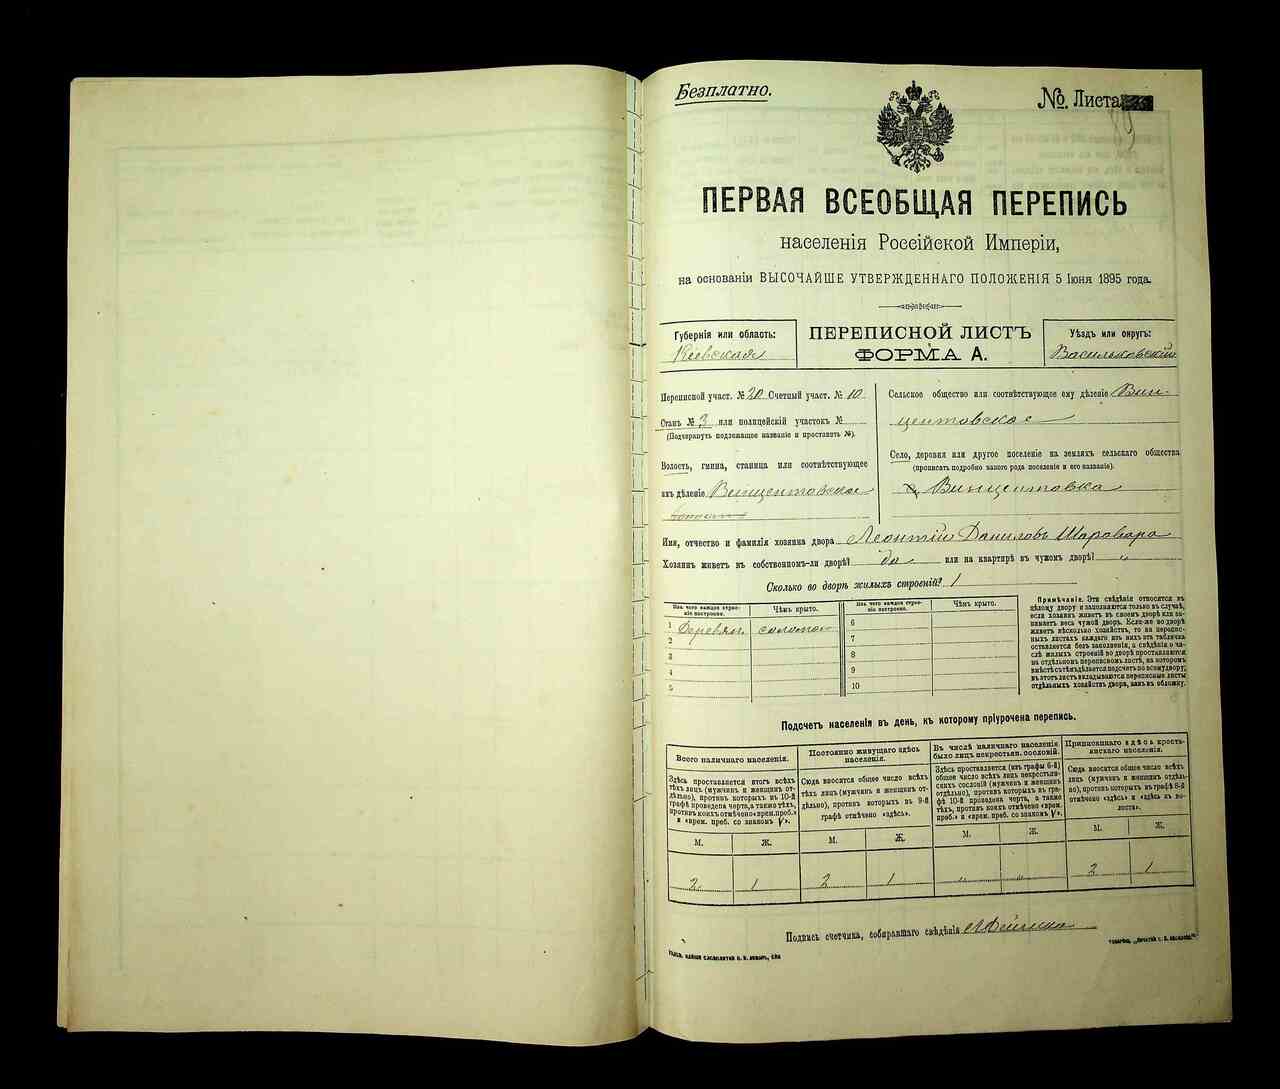 Безплатно.
№ Листа
89
ПЕРВАЯ ВСЕОБЩАЯ ПЕРЕПИСЬ
населенія Россійской Имперіи,
на основаніи ВЫСОЧАЙШЕ УТВЕРЖДЕННАГО ПОЛОЖЕНІЯ 5 Іюня 1895 года.
Губернія или область:
Кіевская
ПЕРЕПИСНОЙ ЛИСТЪ
ФОРМА А.
Уѣздъ или округъ:
Васильковскій
Переписной участ. № 20 Счетный участ. № 10
Станъ № 3 или полицейскій участокъ №
(Подчеркнуть подлежащее названіе и проставить №).
Волость, гмина, станица или соотвѣтствующее
имъ дѣленіе Винцентовское
Сельское общество или соотвѣтствующее ему дѣленіе Вин-
центовское
Село, деревня или другое поселеніе на земляхъ сельскаго общества
(прописать подробно какого рода поселеніе и его названіе).
Винцентовка
Имя, отчество и фамилія хозяина двора Леонтій Даниловъ Шаровара
Хозяинъ живетъ въ собственномъ-ли дворѣ? да или на квартирѣ въ чужомъ дворѣ? "
Сколько во дворѣ жилыхъ строеній? 1
Изъ чего каждое строе-
ніе построено.
Чѣмъ крыто.
Изъ чего каждое строе-
ніе построено.
Чѣмъ крыто.
1 Деревян. солома
2
3
4
5
6
7
8
9
10
Примѣчаніе. Эти свѣдѣнія относятся къ
цѣлому двору и заполняются только въ случаѣ,
если хозяинъ живетъ въ своемъ дворѣ или за-
нимаетъ весь чужой дворъ. Если-же во дворѣ
живетъ нѣсколько хозяйствъ, то на перепис-
ныхъ листахъ каждаго изъ нихъ эта табличка
оставляется безъ заполненія, а свѣдѣнія о чи-
слѣ жилыхъ строеній во дворѣ проставляются
на отдѣльномъ переписномъ листѣ, на которомъ
вмѣстѣ съ тѣмъ дѣлается подсчетъ по всему двору;
въ этотъ листъ вкладываются переписные листы
отдѣльныхъ хозяйствъ двора, какъ въ обложку.
Подсчетъ населенія въ день, къ которому пріурочена перепись.
Всего наличнаго населенія.
Здѣсь проставляется итогъ всѣхъ
тѣхъ лицъ (мужчинъ и женщинъ от-
дѣльно), противъ которыхъ въ 10-й
графѣ проведена черта, а также тѣхъ,
противъ коихъ отмѣчено «врем. преб.»
и «врем. преб. со знакомъ V».
Постоянно живущаго здѣсь
населенія.
Сюда вносится общее число всѣхъ
тѣхъ лицъ (мужчинъ и женщинъ от-
дѣльно), противъ которыхъ въ 9-й
графѣ отмѣчено «здѣсь».
Въ числѣ наличнаго населенія
было лицъ некрестьян. сословій.
Здѣсь проставляется (изъ графы 6-й)
общее число всѣхъ лицъ некрестьян-
скихъ сословій (мужчинъ и женщинъ
отдѣльно), противъ которыхъ въ гра-
фѣ 10-й проведена черта, а также
тѣхъ, противъ коихъ отмѣчено «врем.
преб.» и «врем. преб. со знакомъ V».
Приписаннаго здѣсь кресть-
янскаго населенія.
Сюда вносится общее число всѣхъ
лицъ (мужчинъ и женщинъ отдѣль-
но), противъ которыхъ въ графѣ 8-й
отмѣчено «здѣсь» и «здѣсь къ во-
лости».
М. Ж. М. Ж. М. Ж. М. Ж.
2 1 2 1 " " 2 1
Подпись счетчика, собиравшаго свѣдѣнія